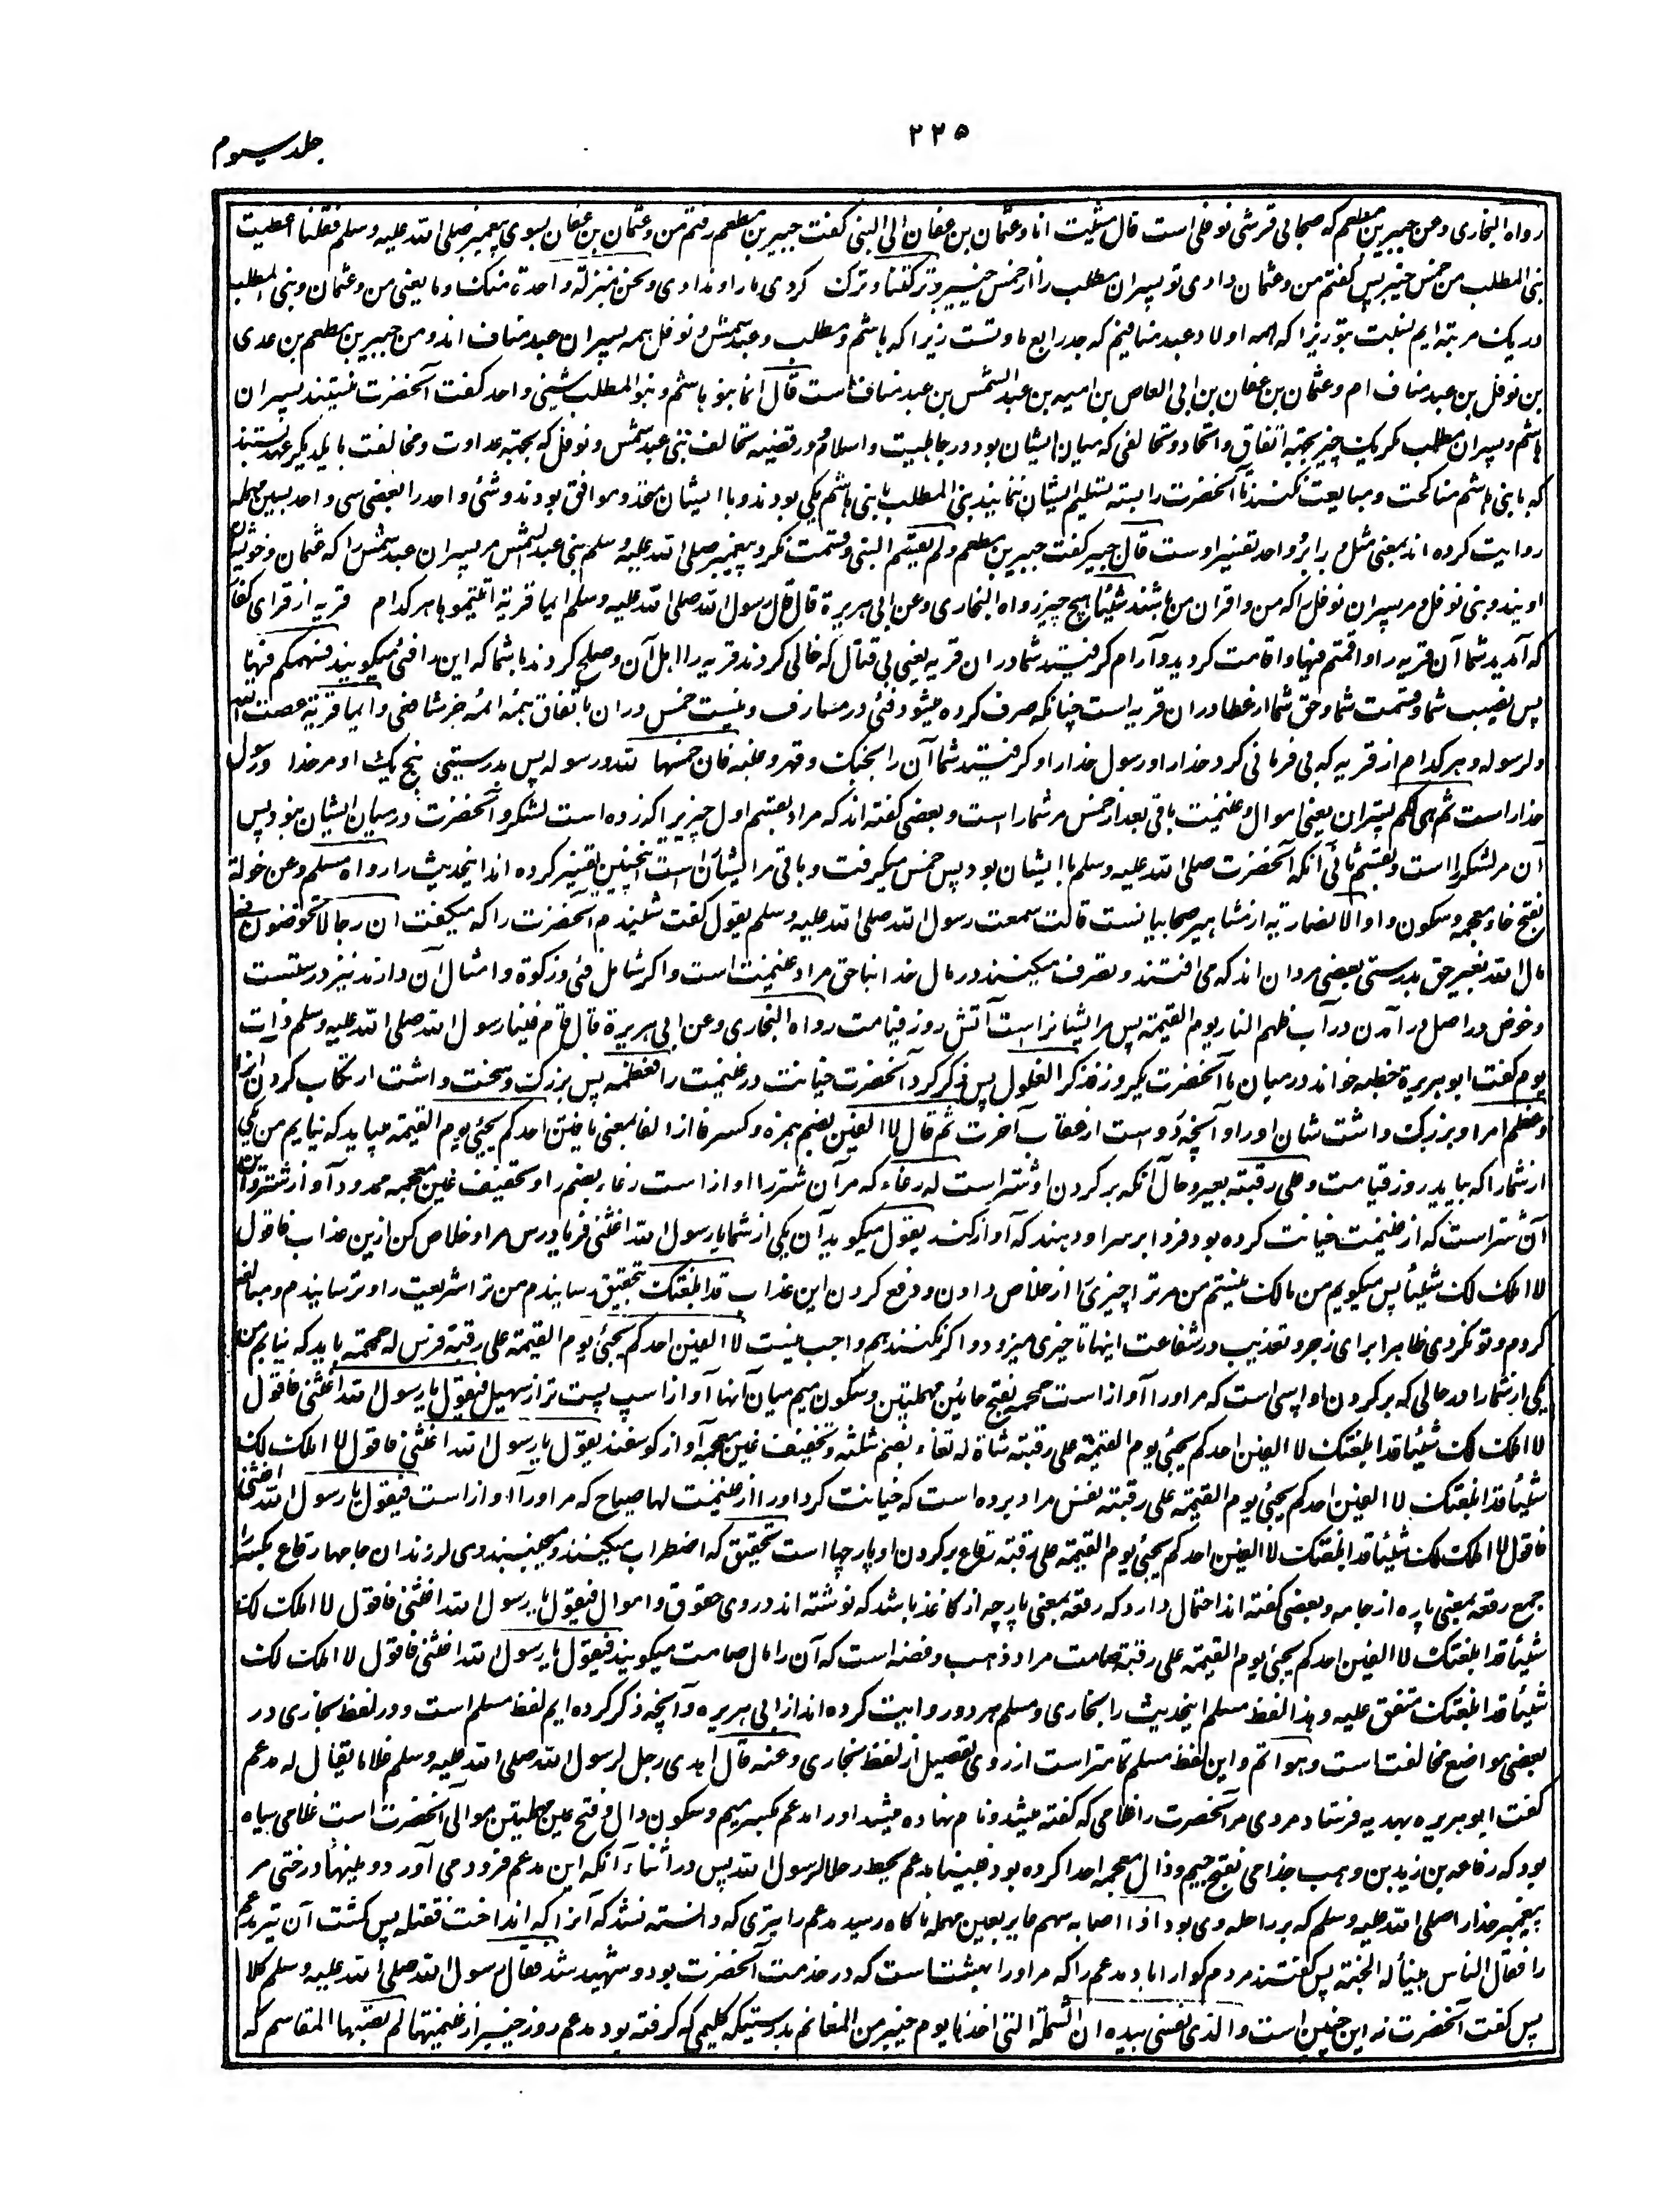 ۲۲۵
جلد سیوم
رواه البخاری وعن جبیر بن مطعم که صحابی قرشی نوفلی است قال مشیت انا وعثمان بن عفان الی النبی گفت جبیر بن مطعم رفتم من وعثمان بن عفان بسوی پیغمبر صلی الله علیه وسلم فقلنا اعطیت
بنی المطلب من خمس خیبر پس گفتم من وعثمان دادی تو پسران مطلب را از خمس خیبر وترکتنا وترک کردی ما را وندادی ونحن بمنزلة واحدة منک وما یعنی من وعثمان وبنی المطلب
در یک مرتبه ایم نسبت بتو زیرا که همه اولاد عبد منافیم که جد رابع ما وتست زیرا که هاشم ومطلب وعبد شمس ونوفل همه پسران عبد مناف اند ومن جبیر بن مطعم بن عدی
بن نوفل بن عبد مناف ام وعثمان بن عفان بن ابی العاص بن امیه بن عبد الشمس بن عبد مناف است قال انما بنو هاشم وبنو المطلب شیئ واحد گفت آنحضرت نیستند پسران
هاشم وپسران مطلب مگر یک چیز بجهة اتفاق واتحاد وتحالفی که میان ایشان بود در جاهلیت واسلام ودر قضیه تحالف بنی عبد شمس ونوفل که بجهة عداوت ومخالفت با یکدیگر عهد بستند
که با بنی هاشم مناکحت ومبایعت نکنند تا آنحضرت را بسته تسلیم ایشان ننمایند بنی المطلب با بنی هاشم یکی بودند وبا ایشان متحد وموافق بودند وشئ واحد را بعضی سی واحد بسین مهمله
روایت کرده اند بمعنی مثل وبرابر وواحد تفسیر اوست قال جبیر گفت جبیر بن مطعم ولم یقسم النبی وقسمت نکرد پیغمبر صلی الله علیه وسلم بنی عبد الشمس مر پسران عبد شمس را که عثمان وخویشان
اویند وبنی نوفل ومر پسران نوفل را که من واقران من باشند شیئا هیچ چیز رواه البخاری وعن ابی هریرة قال قال رسول الله صلی الله علیه وسلم ایما قریة اتیتموها هر کدام قریه از قرای کفار
که آمدید شما آن قریه را واقمتم فیها واقامت کردید وآرام گرفتید شما در ان قریه یعنی بی قتال که خالی کردند قریه را اهل آن وصلح کردند با شما که این را فئ میگویند فسهمکم فیها
پس نصیب شما وقسمت شما وحق شما از عطا در ان قریه است چنانکه صرف کرده میشود فئ در مصارف ونیست خمس در ان باتفاق همه ائمه جز شافعی وایما قریة عصت الله
ولرسوله وهر کدام از قریه که بی فرمانی کرد خدا را ورسول خدا را وگرفتید شما آن را بجنگ وقهر وغلبه فان خمسها لله ورسوله پس بدرستی پنج یک او مر خدا ورسول
خدا راست ثم هی لکم پستران یعنی اموال وغنیمت باقی بعد از خمس مر شما راست وبعضی گفته اند که مراد بقسم اول چیزی را که زده است لشکر وآنحضرت در میان ایشان نبود پس
آن مر لشکر را است وبقسم ثانی آنکه آنحضرت صلی الله علیه وسلم با ایشان بود پس خمس میگرفت وباقی مر ایشان است اینچنین تفسیر کرده اند اینحدیث را رواه مسلم وعن خولة
بفتح خاء معجمه وسکون واو الانصاریة از مشاهیر صحابیانست قالت سمعت رسول الله صلی الله علیه وسلم یقول گفت شنیدم آنحضرت را که میگفت ان رجالا یتخوضون فی
مال الله بغیر حق بدرستی بعضی مردان اند که می افتند وتصرف میکنند در مال خدا بناحق مراد غنیمت است واگر شامل فئ وزکوة وامثال آن دارند نیز درستست
وخوض در اصل در آمدن در آب فلهم النار یوم القیمة پس مر ایشانراست آتش روز قیامت رواه البخاری وعن ابی هریرة قال قام فینا رسول الله صلی الله علیه وسلم ذات
یوم گفت ابو هریرة خطبه خواند در میان ما آنحضرت یکروز فذکر الغلول پس ذکر کرد آنحضرت خیانت در غنیمت را فعظمه پس بزرگ وسخت داشت ارتکاب کردن انرا
وعظم امره وبزرگ داشت شان او را وآنچه در وست از عقاب آخرت ثم قال لا الفین بضم همزه وکسر فا از الفا بمعنی یافتن احدکم یجیئ یوم القیمة میباید که نیابم من یکی
از شما را که بیاید روز قیامت وعلی رقبته بعیر وحال آنکه بر گردن او شتر است له رغاء که مر آن شتر را اوازاست رغاء بضم را وتخفیف غین معجمه ممدود آواز شتر واین
آن شتر است که از غنیمت خیانت کرده بود فردا بر سر او دهند که آواز کند یقول میگوید آن یکی از شما یا رسول الله اغثنی فریاد رس مرا وخلاص کن ازین عذاب فاقول
لا املک لک شیئا پس میگویم من مالک نیستم من مر ترا چیزی را از خلاص دادن ودفع کردن این عذاب قد ابلغتک بتحقیق رسانیدم من ترا شریعت را وترسانیدم ومبالغه
کردم وتو نکردی ظاهرا برای زجر وتعذیب در شفاعت اینها تاخیری میرود واگر نکنند هم واجب نیست لا الفین احدکم یجیئ یوم القیمة علی رقبته فرس له حمحمة باید که نیابم من
یکی از شما را در حالی که بر گردن او اسپی است که مر او را آوازاست حمحمه بفتح حائین مهملتین وسکون میم میان آنها آواز اسپ پست تر از صهیل فیقول یا رسول الله اغثنی فاقول
لا املک لک شیئا قد ابلغتک لا الفین احدکم یجیئ یوم القیمة علی رقبته شاة له ثغاء بضم مثلثه وتخفیف غین معجمه آواز گوسفند یقول یا رسول الله اغثنی فاقول لا املک لک
شیئا قد ابلغتک لا الفین احدکم یجیئ یوم القیمة علی رقبته نفس مراد برده است که خیانت کرد او را از غنیمت لها صیاح که مر او را آوازاست فیقول یا رسول الله اغثنی
فاقول لا املک لک شیئا قد ابلغتک لا الفین احدکم یجیئ یوم القیمة علی رقبته رقاع بر گردن او پارچها است تخفق که اضطراب میکنند ومیجنبند ومی لرزند ان جامها رقاع بکسر را
جمع رقعه بمعنی پاره از جامه وبعضی گفته اند احتمال دارد که رقعه بمعنی پارچه از کاغذ باشد که نوشته اند در وی حقوق واموال فیقول یا رسول الله اغثنی فاقول لا املک لک
شیئا قد ابلغتک لا الفین احدکم یجیئ یوم القیمة علی رقبته صامت مراد ذهب وفضه است که آن را مال صامت میگویند فیقول یا رسول الله اغثنی فاقول لا املک لک
شیئا قد ابلغتک متفق علیه وهذا لفظ مسلم اینحدیث را بخاری ومسلم هر دو روایت کرده اند از ابی هریره وآنچه ذکر کرده ایم لفظ مسلم است ودر لفظ بخاری در
بعضی مواضع مخالفت است وهو اتم واین لفظ مسلم تمامتر است از روی تفصیل از لفظ بخاری وعنه قال اهدی رجل لرسول الله صلی الله علیه وسلم غلاما یقال له مدعم
گفت ابو هریره بهدیه فرستاد مردی مر آنحضرت را غلامی که گفته میشد ونام نهاده میشد او را مدعم بکسر میم وسکون دال وفتح عین مهملتین مولی آنحضرت است غلامی سیاه
بود که رفاعه بن زید بن وهب جذامی بفتح جیم وذال معجمه اهدا کرده بود فبینما مدعم یحط رحلا لرسول الله پس در اثناء آنکه این مدعم فرود می آورد ومینهاد رختی مر
پیغمبر خدا را صلی الله علیه وسلم که بر راحله وی بود اذا اصابه سهم عایر بعین مهمله ناگاه رسید مدعم را تیری که دانسته نشد که آنرا که انداخت فقتله پس کشت آن تیر مدعم
را فقال الناس هنیأ له الجنة پس گفتند مردم گوارا باد مدعم را که مر او را بهشت است که در خدمت آنحضرت بود وشهید شد فقال رسول الله صلی الله علیه وسلم کلا
پس گفت آنحضرت نه این چنین است والذی نفسی بیده ان الشملة التی اخذها یوم خیبر من المغانم بدرستیکه گلیمی که گرفته بود مدعم روز خیبر از غنیمتها لم یصبها المقاسم که